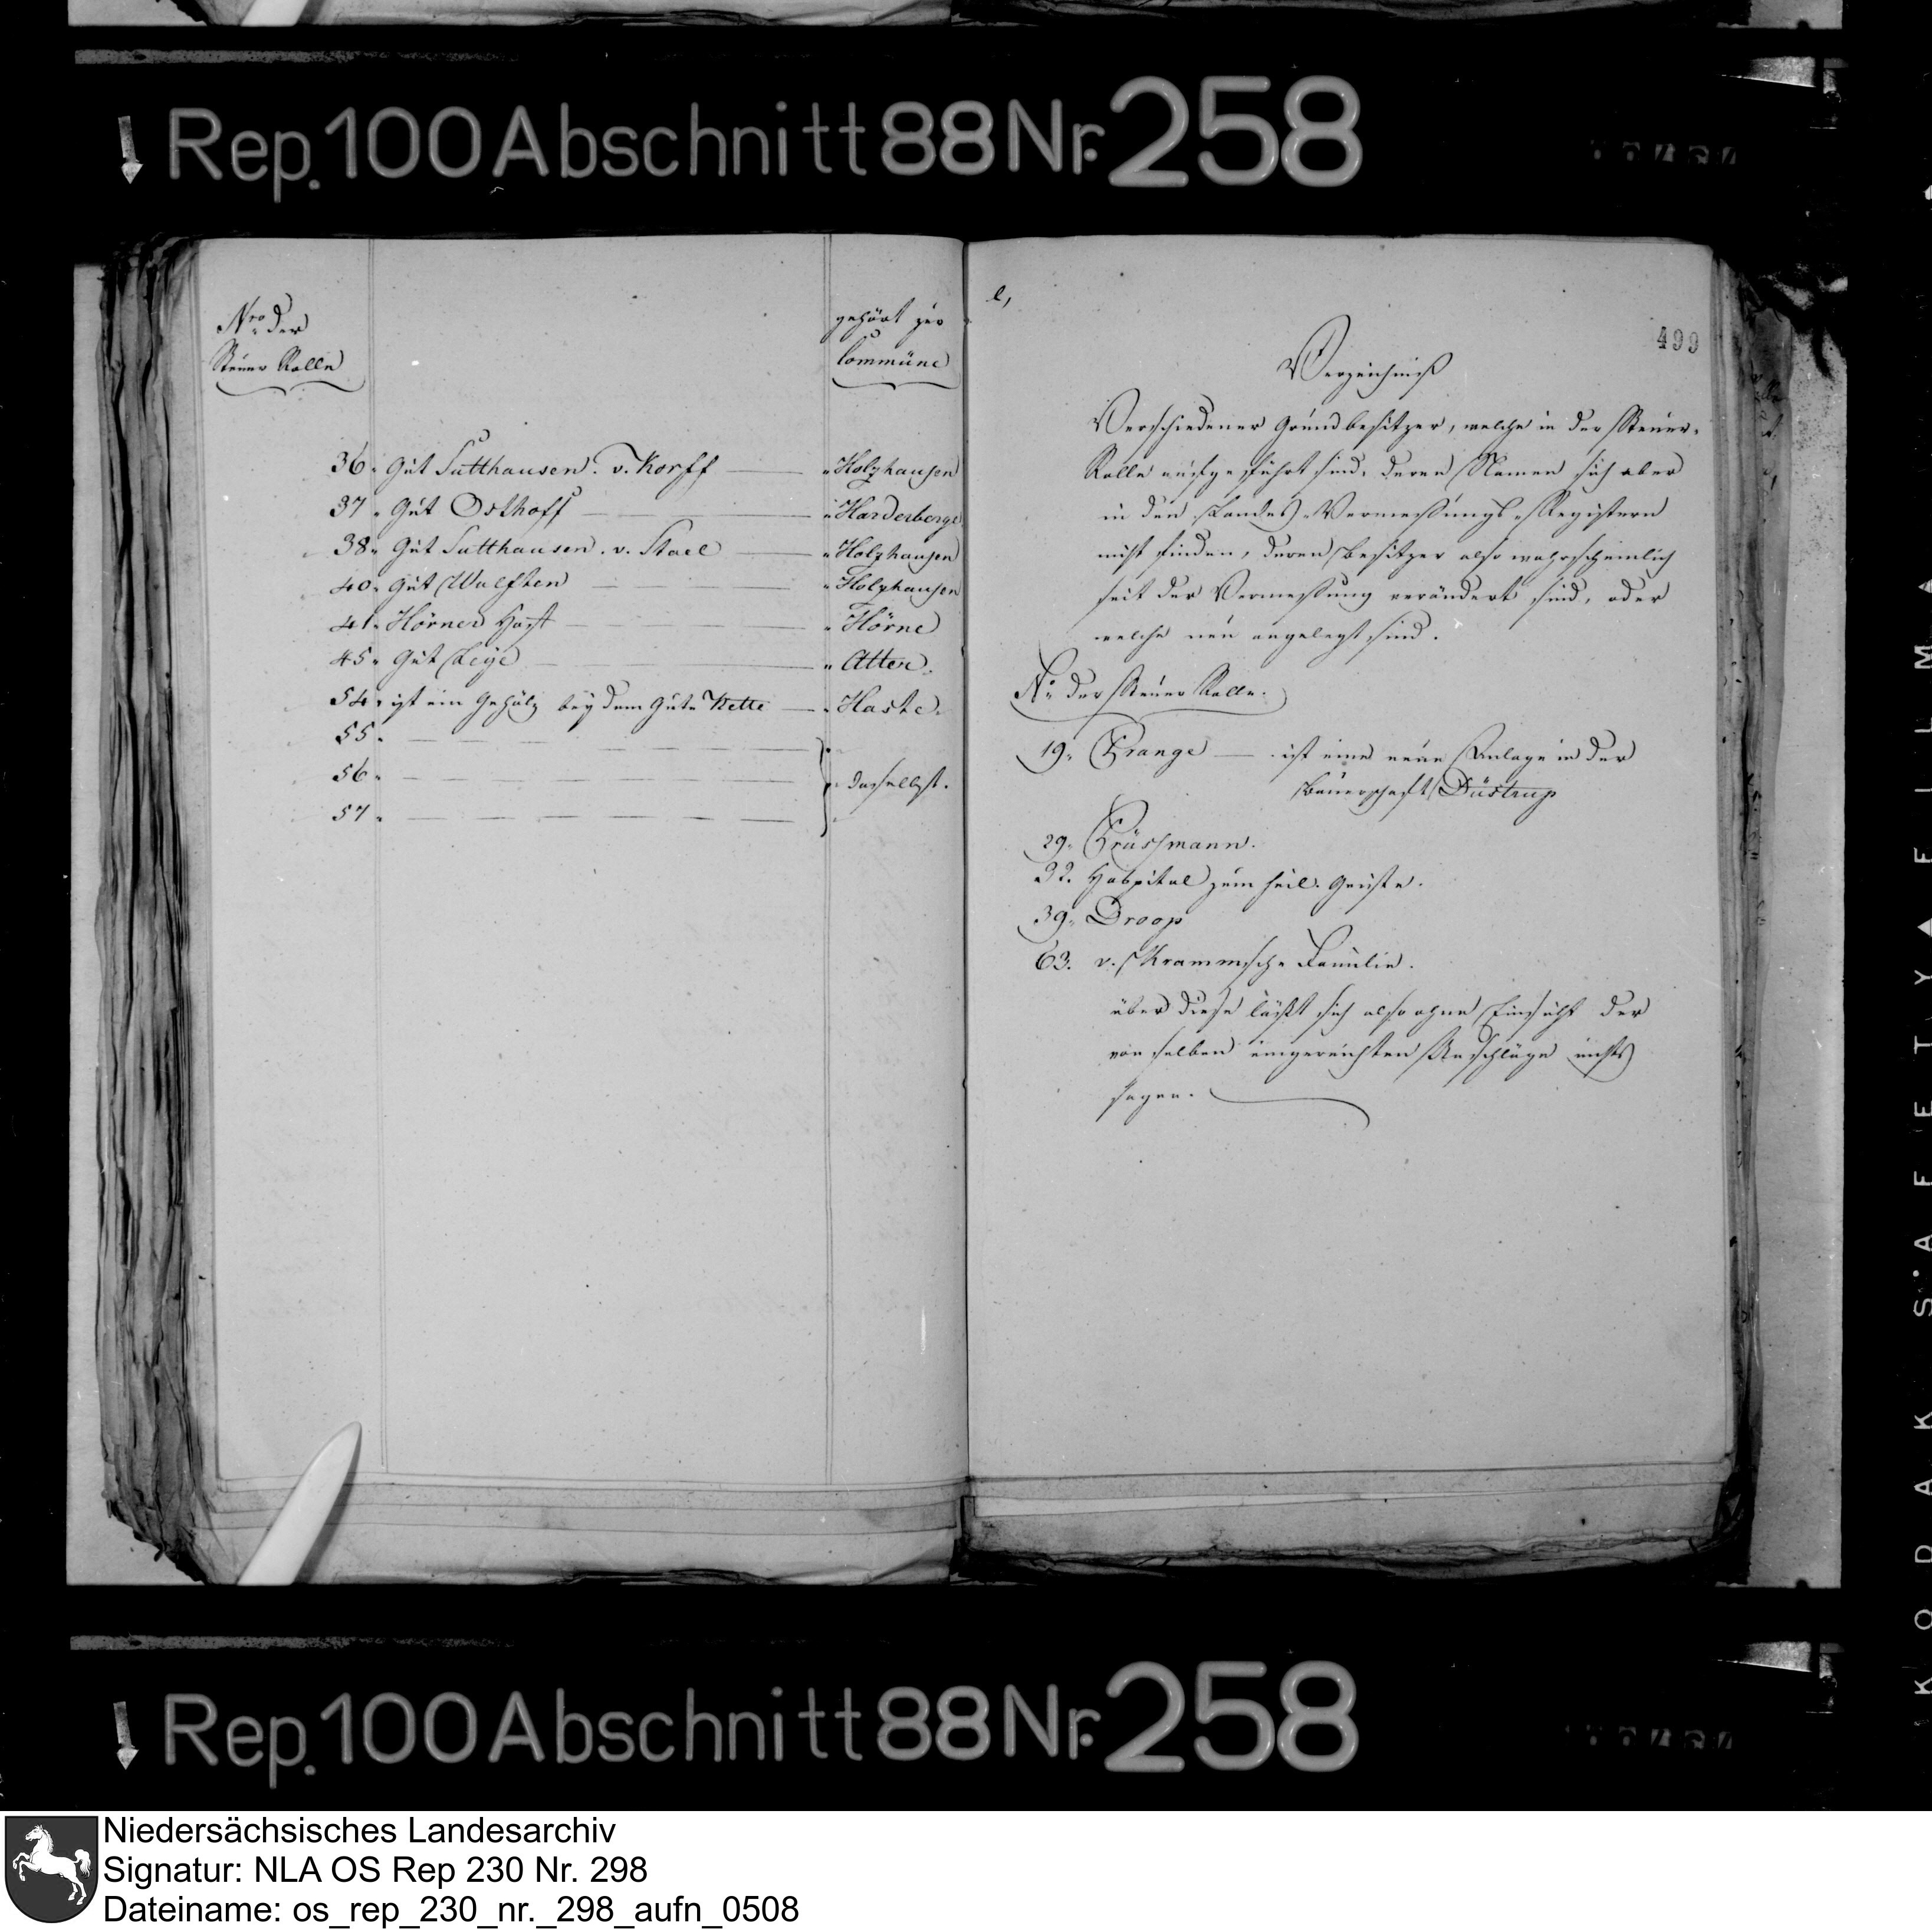 Rep. 100 Abschnitt 88 Nr. 258
Nro der
Steuer Rolle
gehört zur
Commüne
36. Gut Sutthausen. v. Korff — Holzhausen
37. Gut Osthoff — Harderberge
38. Gut Sutthausen. v. Stael — Holzhausen
40. Gut Wulften — Holzhausen
41. Hörner Hast — Hörne
45. Gut Leye — Atter.
54. ist ein Gehölz bey dem Gute Nette — Haste.
55.
56. daselbst.
57.
e,
499
Verzeichniß
Verschiedener Grundbesitzer, welche in der Steuer-
Rolle aufgeführt sind, deren Namen sich aber
in den Landes-Vermessungs-Registern
nicht finden, deren Besitzer also wahrscheinlich
seit der Vermessung verändert sind, oder
welche neu angelegt sind.
No der Steuer Rolle.
19. Prange — ist eine neue Anlage in der
Bauerschaft Düstrup
29. Brüsmann.
32. Hospital zum heil. Geiste.
39. Droop
63. v. Krammsche Familie.
über diese läßt sich also ohne Einsicht der
von selben eingereichten Anschläge nichts
sagen.
Rep. 100 Abschnitt 88 Nr. 258
KODAK SAFETY FILM
Niedersächsisches Landesarchiv
Signatur: NLA OS Rep 230 Nr. 298
Dateiname: os_rep_230_nr._298_aufn_0508